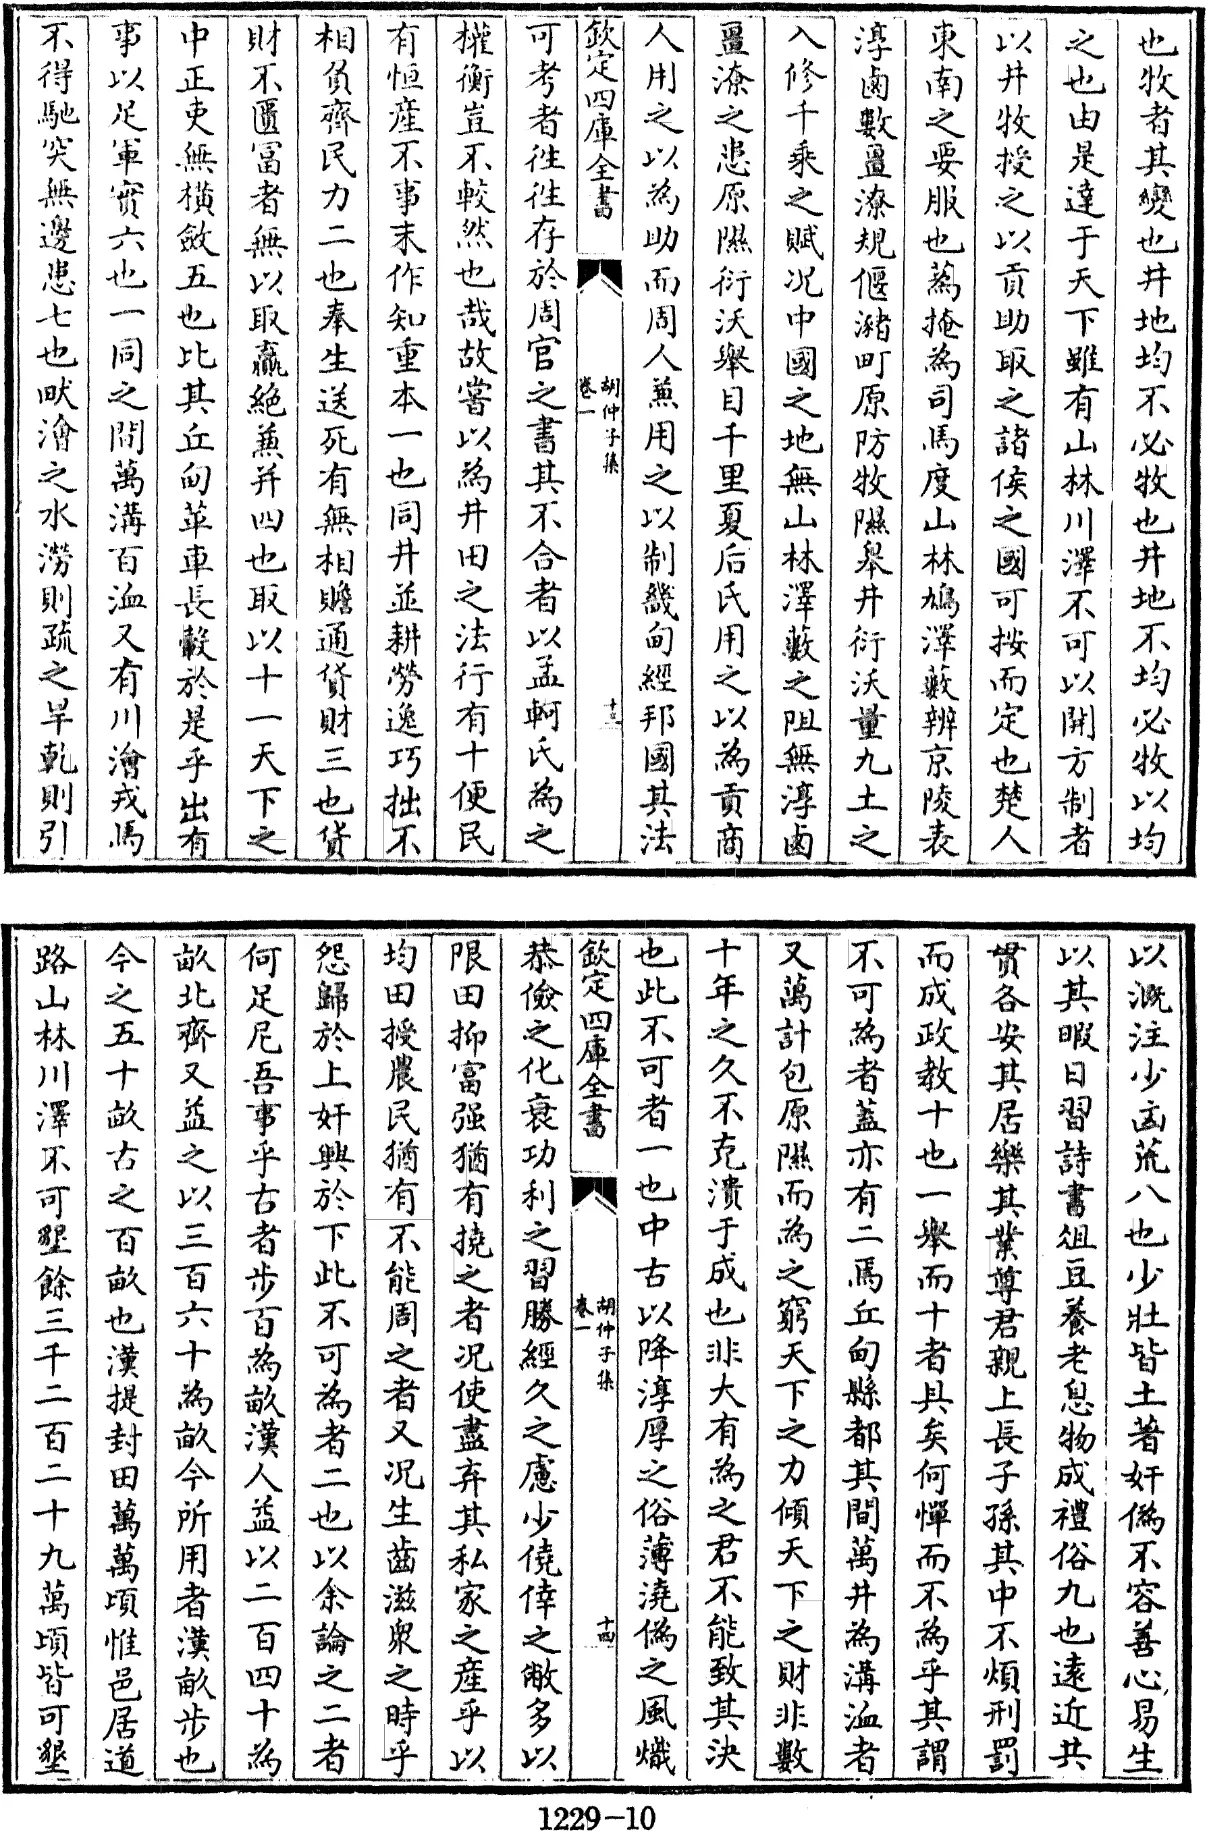 也牧者其變也井地均不必牧也井地不均必牧以均
之也由是達于天下雖有山林川澤不可以開方制者
以井牧授之以貢助取之諸侯之國可按而定也楚人
東南之要服也蔿掩為司馬度山林鳩澤藪辨京陵表
淳鹵數畺潦規偃瀦町原防牧隰臯井衍沃量九土之
入修千乘之賦况中國之地無山林澤藪之阻無淳鹵
畺潦之患原隰衍沃舉目千里夏后氏用之以為貢商
人用之以為助而周人兼用之以制畿甸經邦國其法
欽定四庫全書
胡仲子集
卷一
十三
可考者徃徃存於周官之書其不合者以孟軻氏為之
權衡豈不較然也哉故嘗以為井田之法行有十便民
有恒產不事末作知重本一也同井並耕勞逸巧拙不
相負齊民力二也奉生送死有無相贍通貨財三也貨
財不匱富者無以取贏絶兼并四也取以十一天下之
中正吏無横斂五也比其丘甸革車長轂於是乎出有
事以足軍實六也一同之間萬溝百洫又有川澮戎馬
不得馳突無邊患七也畎澮之水澇則疏之旱乾則引
以溉注少凶荒八也少壯皆土著奸偽不容善心易生
以其暇日習詩書俎豆養老息物成禮俗九也遠近共
貫各安其居樂其業尊君親上長子孫其中不煩刑罰
而成政教十也一舉而十者具矣何憚而不為乎其謂
不可為者蓋亦有二焉丘甸縣都其間萬井為溝洫者
又萬計包原隰而為之窮天下之力傾天下之財非數
十年之久不克潰于成也非大有為之君不能致其决
也此不可者一也中古以降淳厚之俗薄澆偽之風熾
欽定四庫全書
胡仲子集
卷一
十四
恭儉之化衰功利之習勝經久之慮少僥倖之敝多以
限田抑富强猶有撓之者况使盡弃其私家之產乎以
均田授農民猶有不能周之者又况生齒滋衆之時乎
怨歸於上奸興於下此不可為者二也以余論之二者
何足尼吾事乎古者步百為畝漢人益以二百四十為
畝北齊又益之以三百六十為畝今所用者漢畝步也
今之五十畝古之百畝也漢提封田萬萬頃惟邑居道
路山林川澤不可墾餘三千二百二十九萬頃皆可墾
1229-10